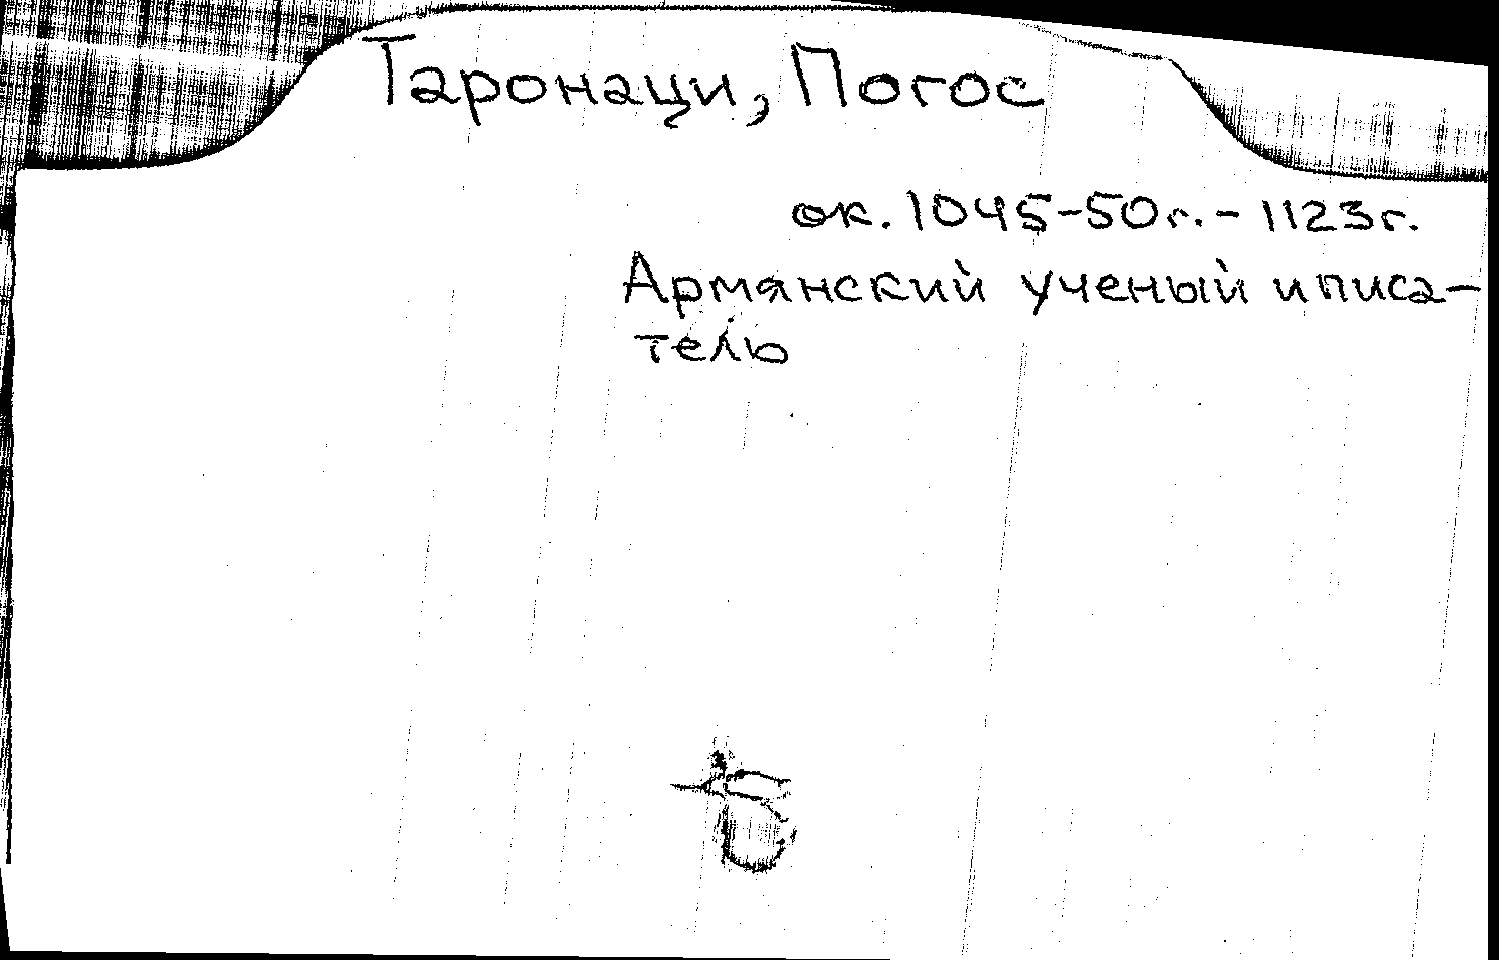 Таронаци, Погос
ок. 1045-50г. - 1123г.
Армянский ученый и писа-
тель